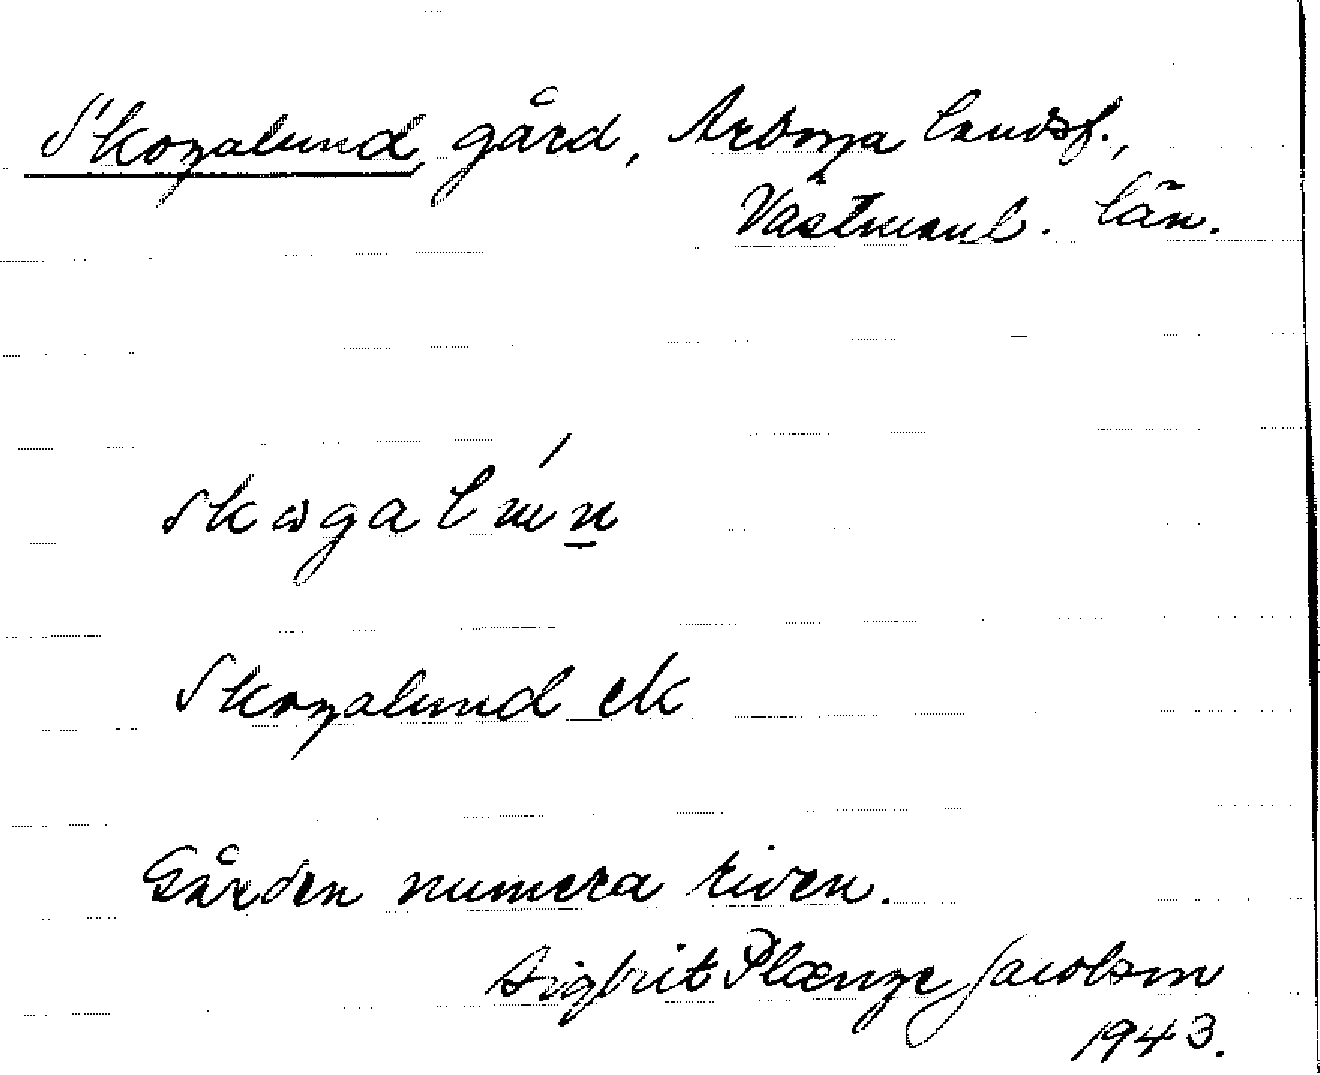 Skogalund, gård, Arboga landsf.,
Västmanl. län.
skɷgalún
Skogalund ek
Gården numera riven.
Sigbrit Plænge Jacobson
1943.